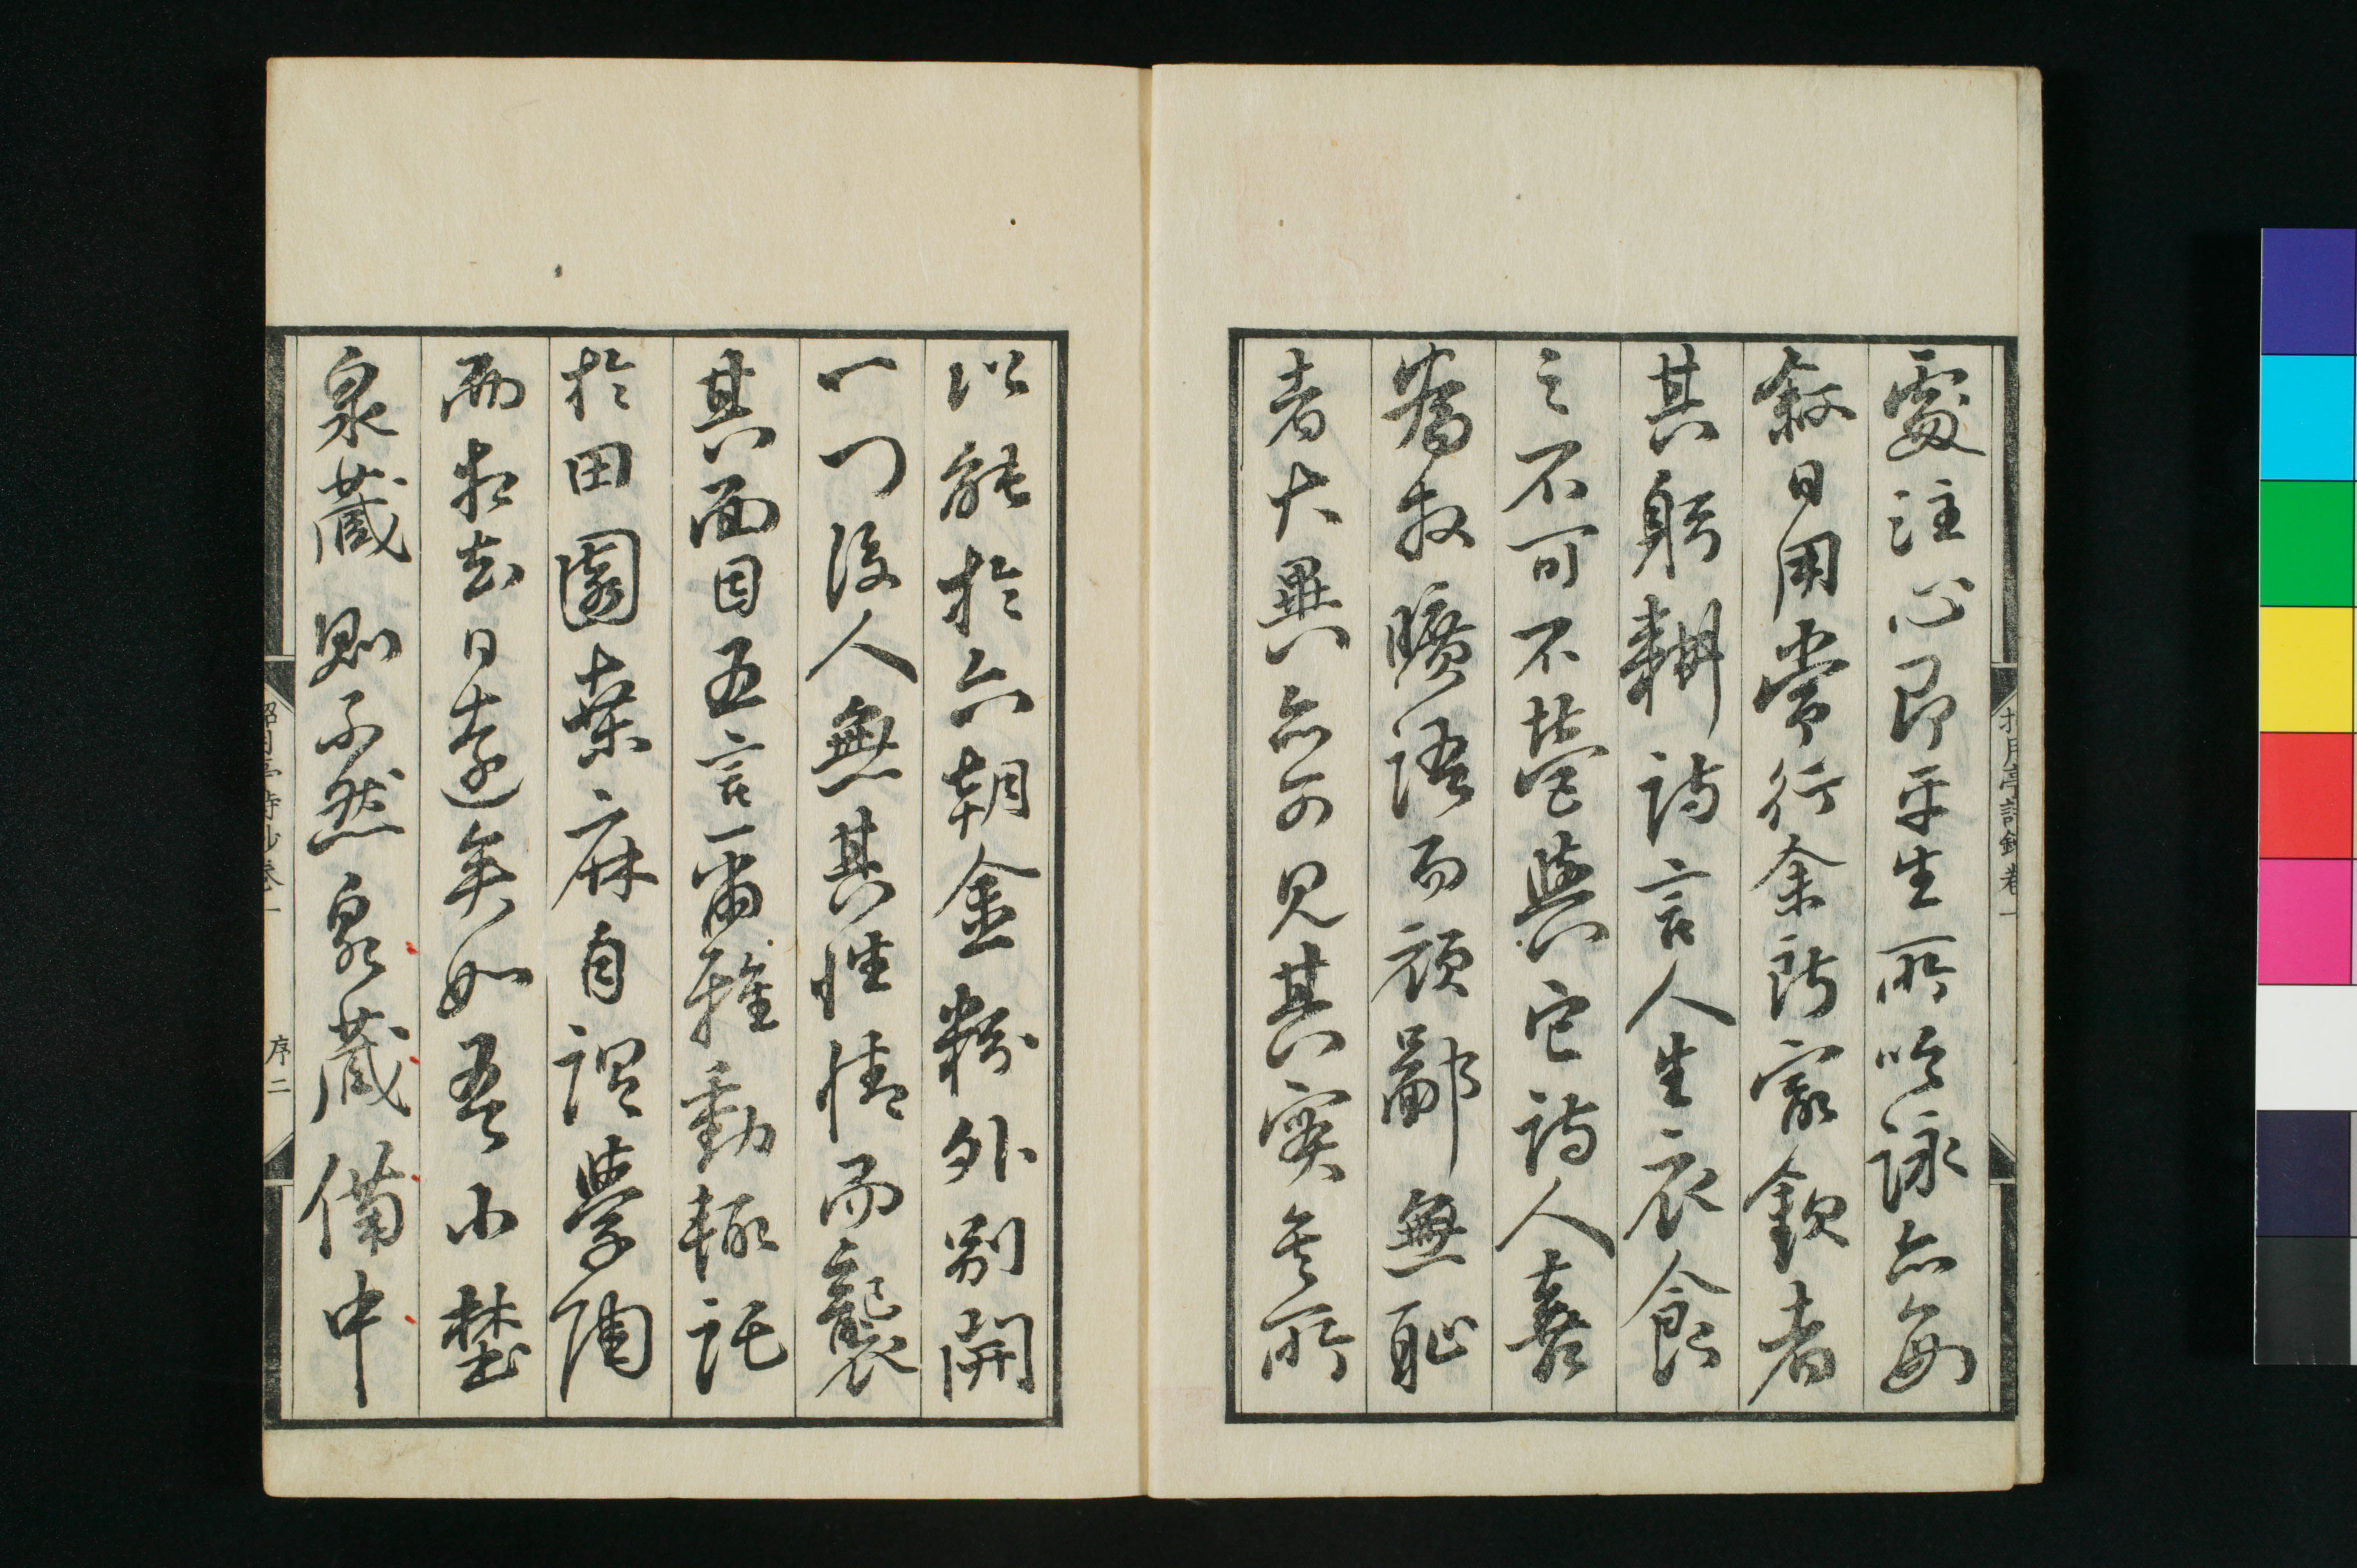 處注心即平生所吟詠亦每
敘日用常行余所寂欽者
其躬耕詩言人生衣食
之不可不營與它詩人喜
為放曠語而顧鄙無恥
者大異亦可見其實無所
以能於六朝金粉外別開
一門後人無其性情而襲
其面目五言一番雅動輒託
於田園桑麻自謂學陶
而相去日遠矣如吾小埜
泉藏則不然泉藏備中
招月亭詩鈔卷一
招月亭詩鈔卷一
序二